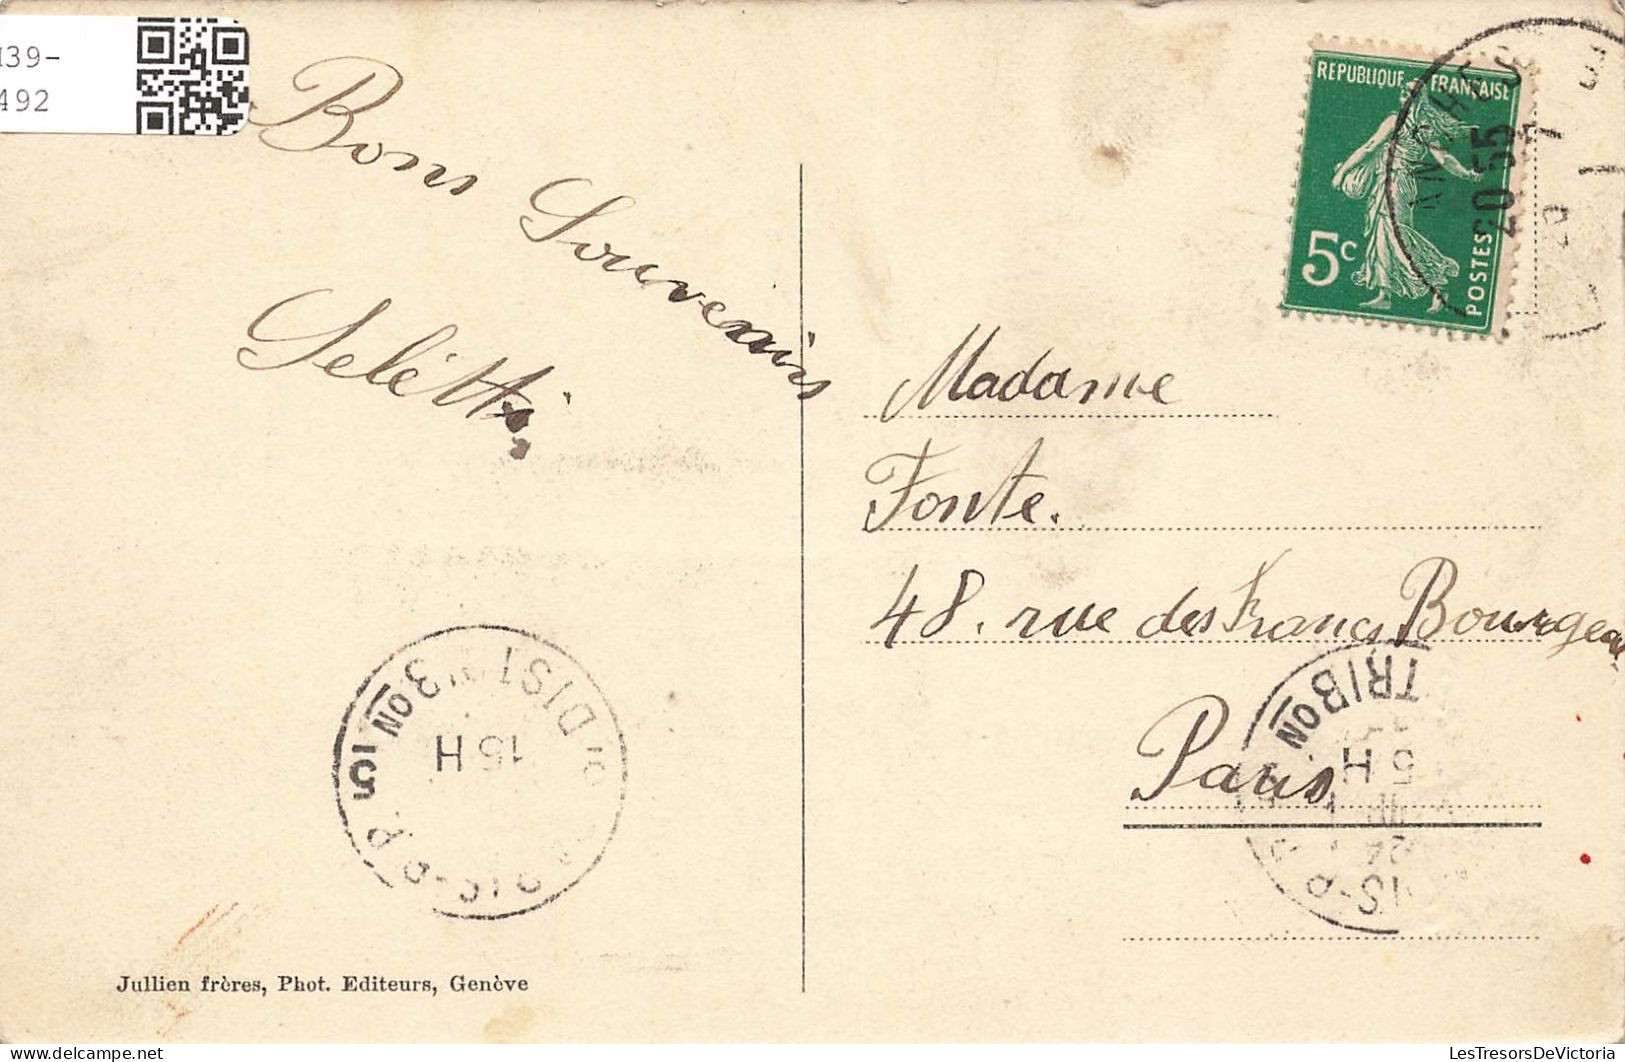 I39-
492
Bons Souvenirs
Selétti
REPUBLIQUE FRANÇAISE
5c
POSTES
20 55
Madame
Fonte.
48. rue des Francs Bourgeois
Paris
DIST
ON 3
15 H
TRIB
ON
5 H
Jullien frères, Phot. Editeurs, Genève
LesTresorsDeVictoria